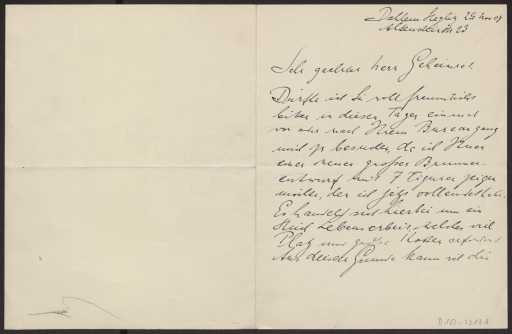 25 Nov 07
23
Sehr geehrter Herr Geheimrat
Dürfte ich Sie voll freundlichst
bitten in diesen Tagen einmal
vor oder nach Ihrem Bureaugang
mich zu besuchen, da ich Ihnen
einen neuen großen Brunnen-
entwurf mit 7 Figuren zeigen
möchte, den ich jetzt vollendet habe.
Es handelt sich hierbei um ein
Stück Lebensarbeit, welches viel
Platz und große Kosten erfordert
Aus diesem Grunde kann ich die